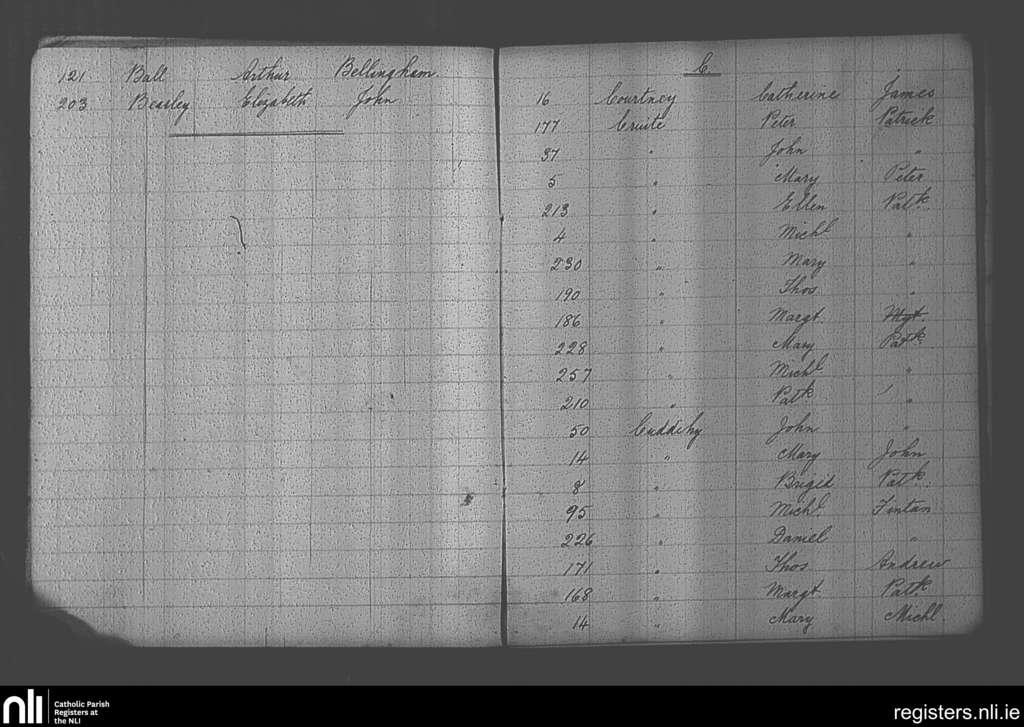 121 Ball Arthur Bellingham
203 Beasley Elizabeth John
C.
16 Courtney Catherine James
177 Cruite Peter Patrick
37 " John "
5 " Mary Peter
213 " Ellen Patk
4 " Michl "
230 " Mary "
190 " Thos "
186 " Margt. Mgt.
228 " Mary Patk
257 " Michl "
210 " Patk "
50 Cuddihy John "
14 " Mary John
8 " Brigid Patk.
95 " Michl. Fintan
226 " Daniel "
171 " Thos Andrew
168 " Margt Patk
14 " Mary Michl.
nli Catholic Parish
Registers at
the NLI
registers.nli.ie